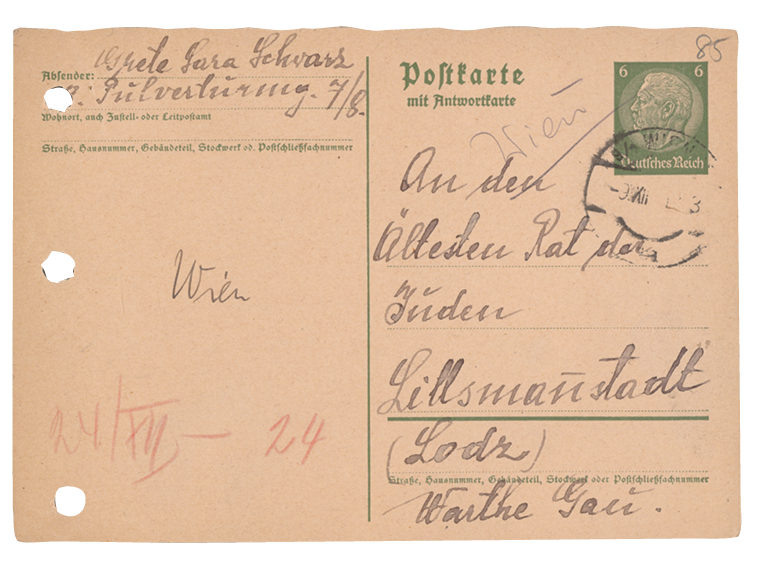 Absender: Grete Sara Schwarz
Pulverturmg. 7/8.
Wohnort, auch Zustell- oder Leitpostamt
Straße, Hausnummer, Gebäudeteil, Stockwerk od. Postschließfachnummer
Wien
24/XII — 24
85
Postkarte
mit Antwortkarte
6 6
Deutsches Reich
Wien
WIEN
9.XII
An den
Ältesten Rat der
Juden
Litzmannstadt
(Lodz)
Straße, Hausnummer, Gebäudeteil, Stockwerk oder Postschließfachnummer
Warthe Gau.